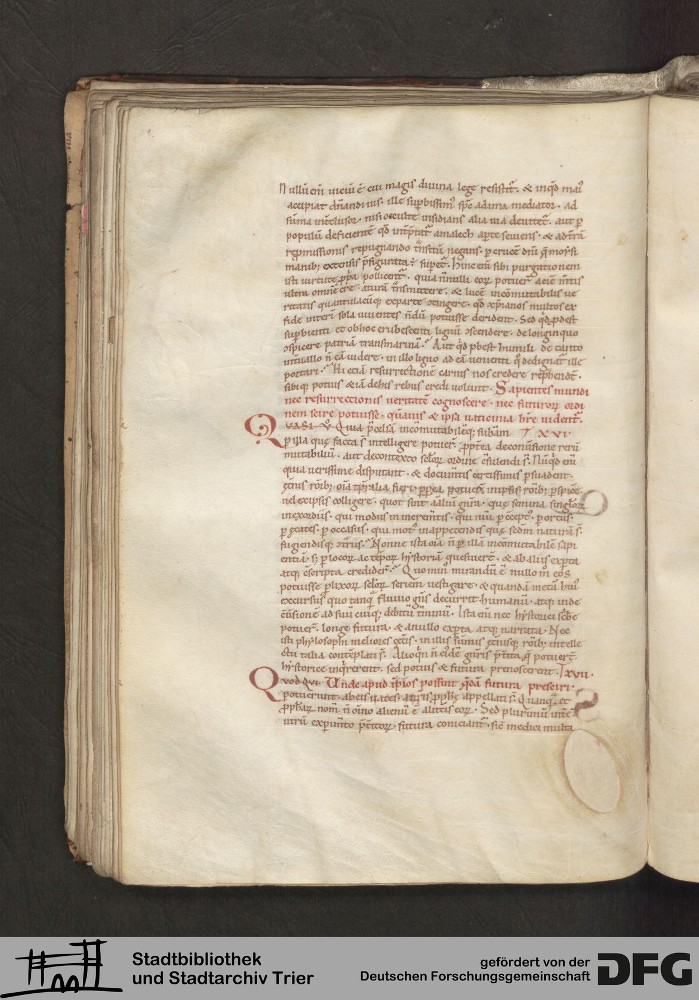 N ullū enī viciū ē cui magis divina lege resistit᷑. & in qd maı᷑
accipiat dn̄andi ius. ille suꝑbissim᷒ sp̄c ad ima mediator. ad
sūma int̄clusor. nisi occulte insidians alia via devitet᷑. aut ꝑ
populū deficientē qd int̄ꝑtat᷑ amalech aꝑte seviens. & ad t̄rā
repmissionis repugnando t̄nsitū negans. ꝑ crucē dn̄i q̄ moysi
manib; extensis p̄figurata ē suꝑet᷑. Hinc enī sibi purgationem
isti virtute ꝓpa pollicent᷑. quia n̄nulli eoꝝ potuer̄ aciē m̄tis
ultra omnē creaturā t̄nsmittere. & lucē incōmutabilis ve
ritatis quantulacūq; ex parte c̄tingere. qd xp̄ianos multos ex
fide interī sola viventes n̄dū potuisse derident. Sed qd ꝓdest
suꝑbienti & ob hoc erubescenti lignū c̄scendere. de longinquo
c̄spicere patriā transmarinā. Aut qd obest humili de tanto
intvallo n̄ eā videre. in illo ligno ad eā venienti q̄ dedignat᷑ ille
portari. Hi etiā resurrectionē carnis nos credere rep̄hendt̄.
sibiq; potius & iā de his rebus credi volunt. Sapientes mundi
nec resurrectionis veritatē cognoscere. nec futuroꝝ ordi
nem scire potuisse. quāvis & ipsi vaticinia hr̄e vident᷑.
Qvasi v̄ Quia p̄celsā incōmutabilēq; substām XXVI.
ꝑ illa quę facta s̄ intelligere potuer̄. ꝓpt̄ea de cōv̄sione rerū
mutabiliū. aut de contexto scl̄oꝝ ordine c̄sulendi s̄. Nūqd eni
quia verissime disputant. & docum̄tis certissimis ꝑsuadent.
ęt̄nis rōnib; oīa tp̄ralia fieri. ꝓpt̄ea potuer̄t in ipsis rōnib; ꝑspice
vel ex ipsis colligere. quot sint aīaliū gn̄a. quę semina singl̄oꝝ
in exordiis. qui modus in increm̄tis. qui nūi ꝑ c̄cept᷒. ꝑ ortus.
ꝑ ętates. ꝑ occasus. qui mot᷒ in appetendis quę sc̄dm naturā s̄.
fugiendisq; c̄triis. Nonne ista oīa n̄ ꝑ illā incōmutabilē sapi
entiā. s; ꝑ locoꝝ ac tēpoꝝ hystoriā quesiuer̄t. & ab aliis exp̄ta
atq; c̄scripta credider̄. Quo min᷒ mirandū ē nullo m̄ eos
potuisse ꝓlixioꝝ scl̄oꝝ seriem vestigare. & quandā metā hui᷒
excursus quo tanq̄ fluvio gn̄s decurrit humanū. atq; inde
c̄v̄sionē ad suū cuiq; debitū t̄minū. Ista enī nec hystorici sc̄bere
potuer̄. longe futura. & a nullo exp̄ta atq; narrata. Nec
isti phylosophi meliores cęt̄is. in illis sūmis ęt̄nisq; rōnib; intelle
ctu talia contēplati s̄. Alioq̄n n̄ ei᷒dē gn̄ris p̄t̄ita. q̄ potuer̄t
hystorice inq̄rerent. sed potius & futura prenoscerent. XXVII.
Quod qui Unde apud ip̄ios possint q̄dā futura presciri.
potuerunt. ab eis vates. a nr̄is ꝓph̄ę appellati s̄. Quanq̄. et
ꝓph̄aꝝ nom̄ n̄ oīno alienū ē a litt̄is eoꝝ. Sed plurimū int̄ē
utrū exꝑim̄to p̄t̄itoꝝ. futura coniciant᷑. sic̄ medici multa
Stadtbibliothek
und Stadtarchiv Trier
gefördert von der
Deutschen Forschungsgemeinschaft
DFG